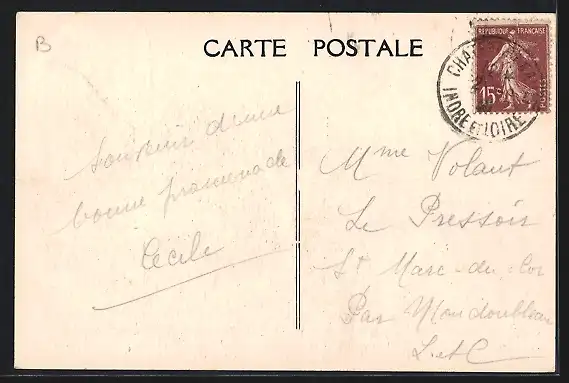 B
CARTE POSTALE
REPUBLIQUE FRANÇAISE
15c
POSTES
CHAT
INDRE ET LOIRE
Souvenir d'une
bonne promenade
Cécile
Mme Volant
Le Pressoir
St Marc-du-Cor
Par Mondoubleau
L et C